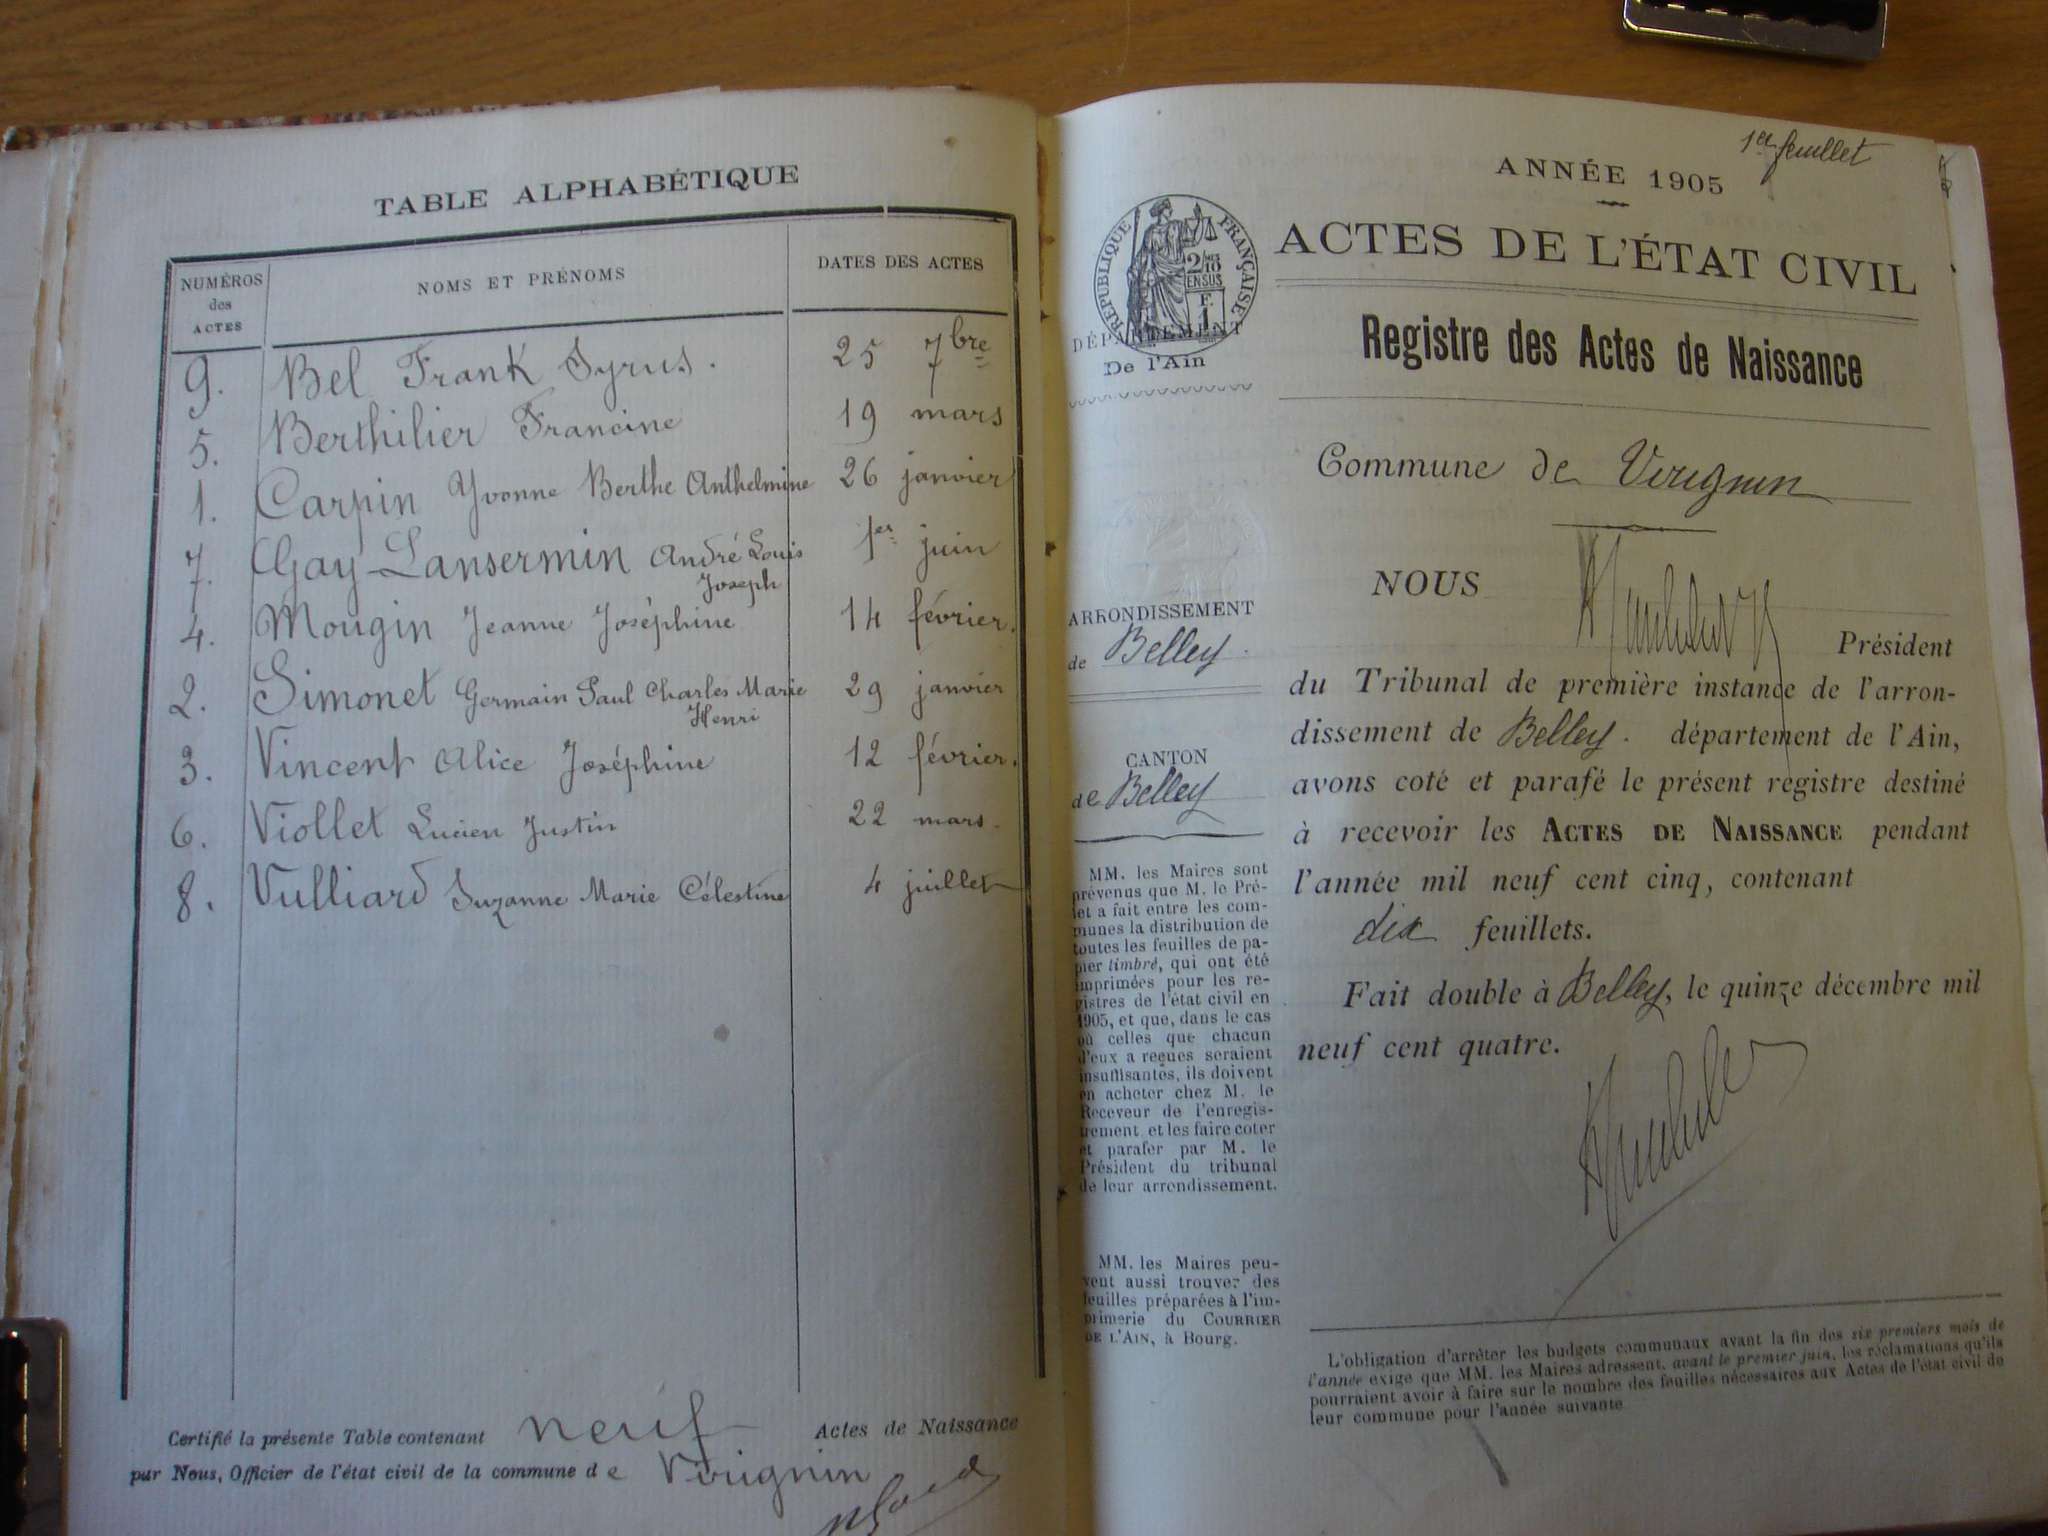 TABLE ALPHABÉTIQUE
NUMÉROS
des
ACTES
NOMS ET PRÉNOMS
DATES DES ACTES
9. Bel Frank Syrus. 25 7bre
5. Berthilier Francine 19 mars
1. Carpin Yvonne Berthe Anthelmine 26 janvier
7. Gay-Lansermin André Louis 1er juin
Joseph
4. Mougin Jeanne Joséphine 14 février.
2. Simonet Germain Paul Charles Marie 29 janvier
Henri
3. Vincent Alice Joséphine 12 février.
6. Viollet Lucien Justin 22 mars.
8. Vulliard Suzanne Marie Célestine 4 juillet
Certifié la présente Table contenant neuf Actes de Naissance
par Nous, Officier de l'état civil de la commune de Virignin
1er feuillet
ANNÉE 1905
ACTES DE L'ÉTAT CIVIL
RÉPUBLIQUE FRANÇAISE
DÉPARTEMENT
De l'Ain
Registre des Actes de Naissance
Commune de Virignin
ARRONDISSEMENT
de Belley.
CANTON
de Belley
MM. les Maires sont
prévenus que M. le Pré-
fet a fait entre les com-
munes la distribution de
toutes les feuilles de pa-
pier timbré, qui ont été
imprimées pour les re-
gistres de l'état civil en
1905, et que, dans le cas
où celles que chacun
d'eux a reçues seraient
insuffisantes, ils doivent
en acheter chez M. le
Receveur de l'enregis-
trement et les faire coter
et parafer par M. le
Président du tribunal
de leur arrondissement.
MM. les Maires peu-
vent aussi trouver des
feuilles préparées à l'im-
primerie du COURRIER
DE L'AIN, à Bourg.
NOUS
Président
du Tribunal de première instance de l'arron-
dissement de Belley. département de l'Ain,
avons coté et parafé le présent registre destiné
à recevoir les ACTES DE NAISSANCE pendant
l'année mil neuf cent cinq, contenant
dix feuillets.
Fait double à Belley, le quinze décembre mil
neuf cent quatre.
L'obligation d'arrêter les budgets communaux avant la fin des six premiers mois de
l'année exige que MM. les Maires adressent, avant le premier juin, les réclamations qu'ils
pourraient avoir à faire sur le nombre des feuilles nécessaires aux Actes de l'état civil de
leur commune pour l'année suivante